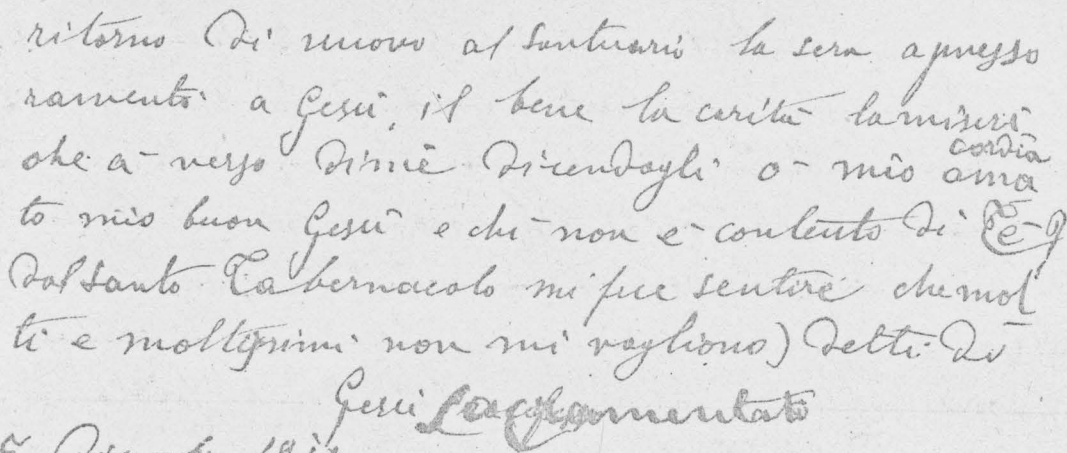 ritorno di nuovo al Santuario la sera apresso
ramento a Gesù, il bene la carità lamiseri
cordia
che à verso dimè dicendogli o mio ama
to mio buon Gesù e chi non è contento di Tè
dalsanto Tabernacolo mi fece sentire chemol
ti e moltissimi non mi vogliono) detti di
Gesù Sagramentato